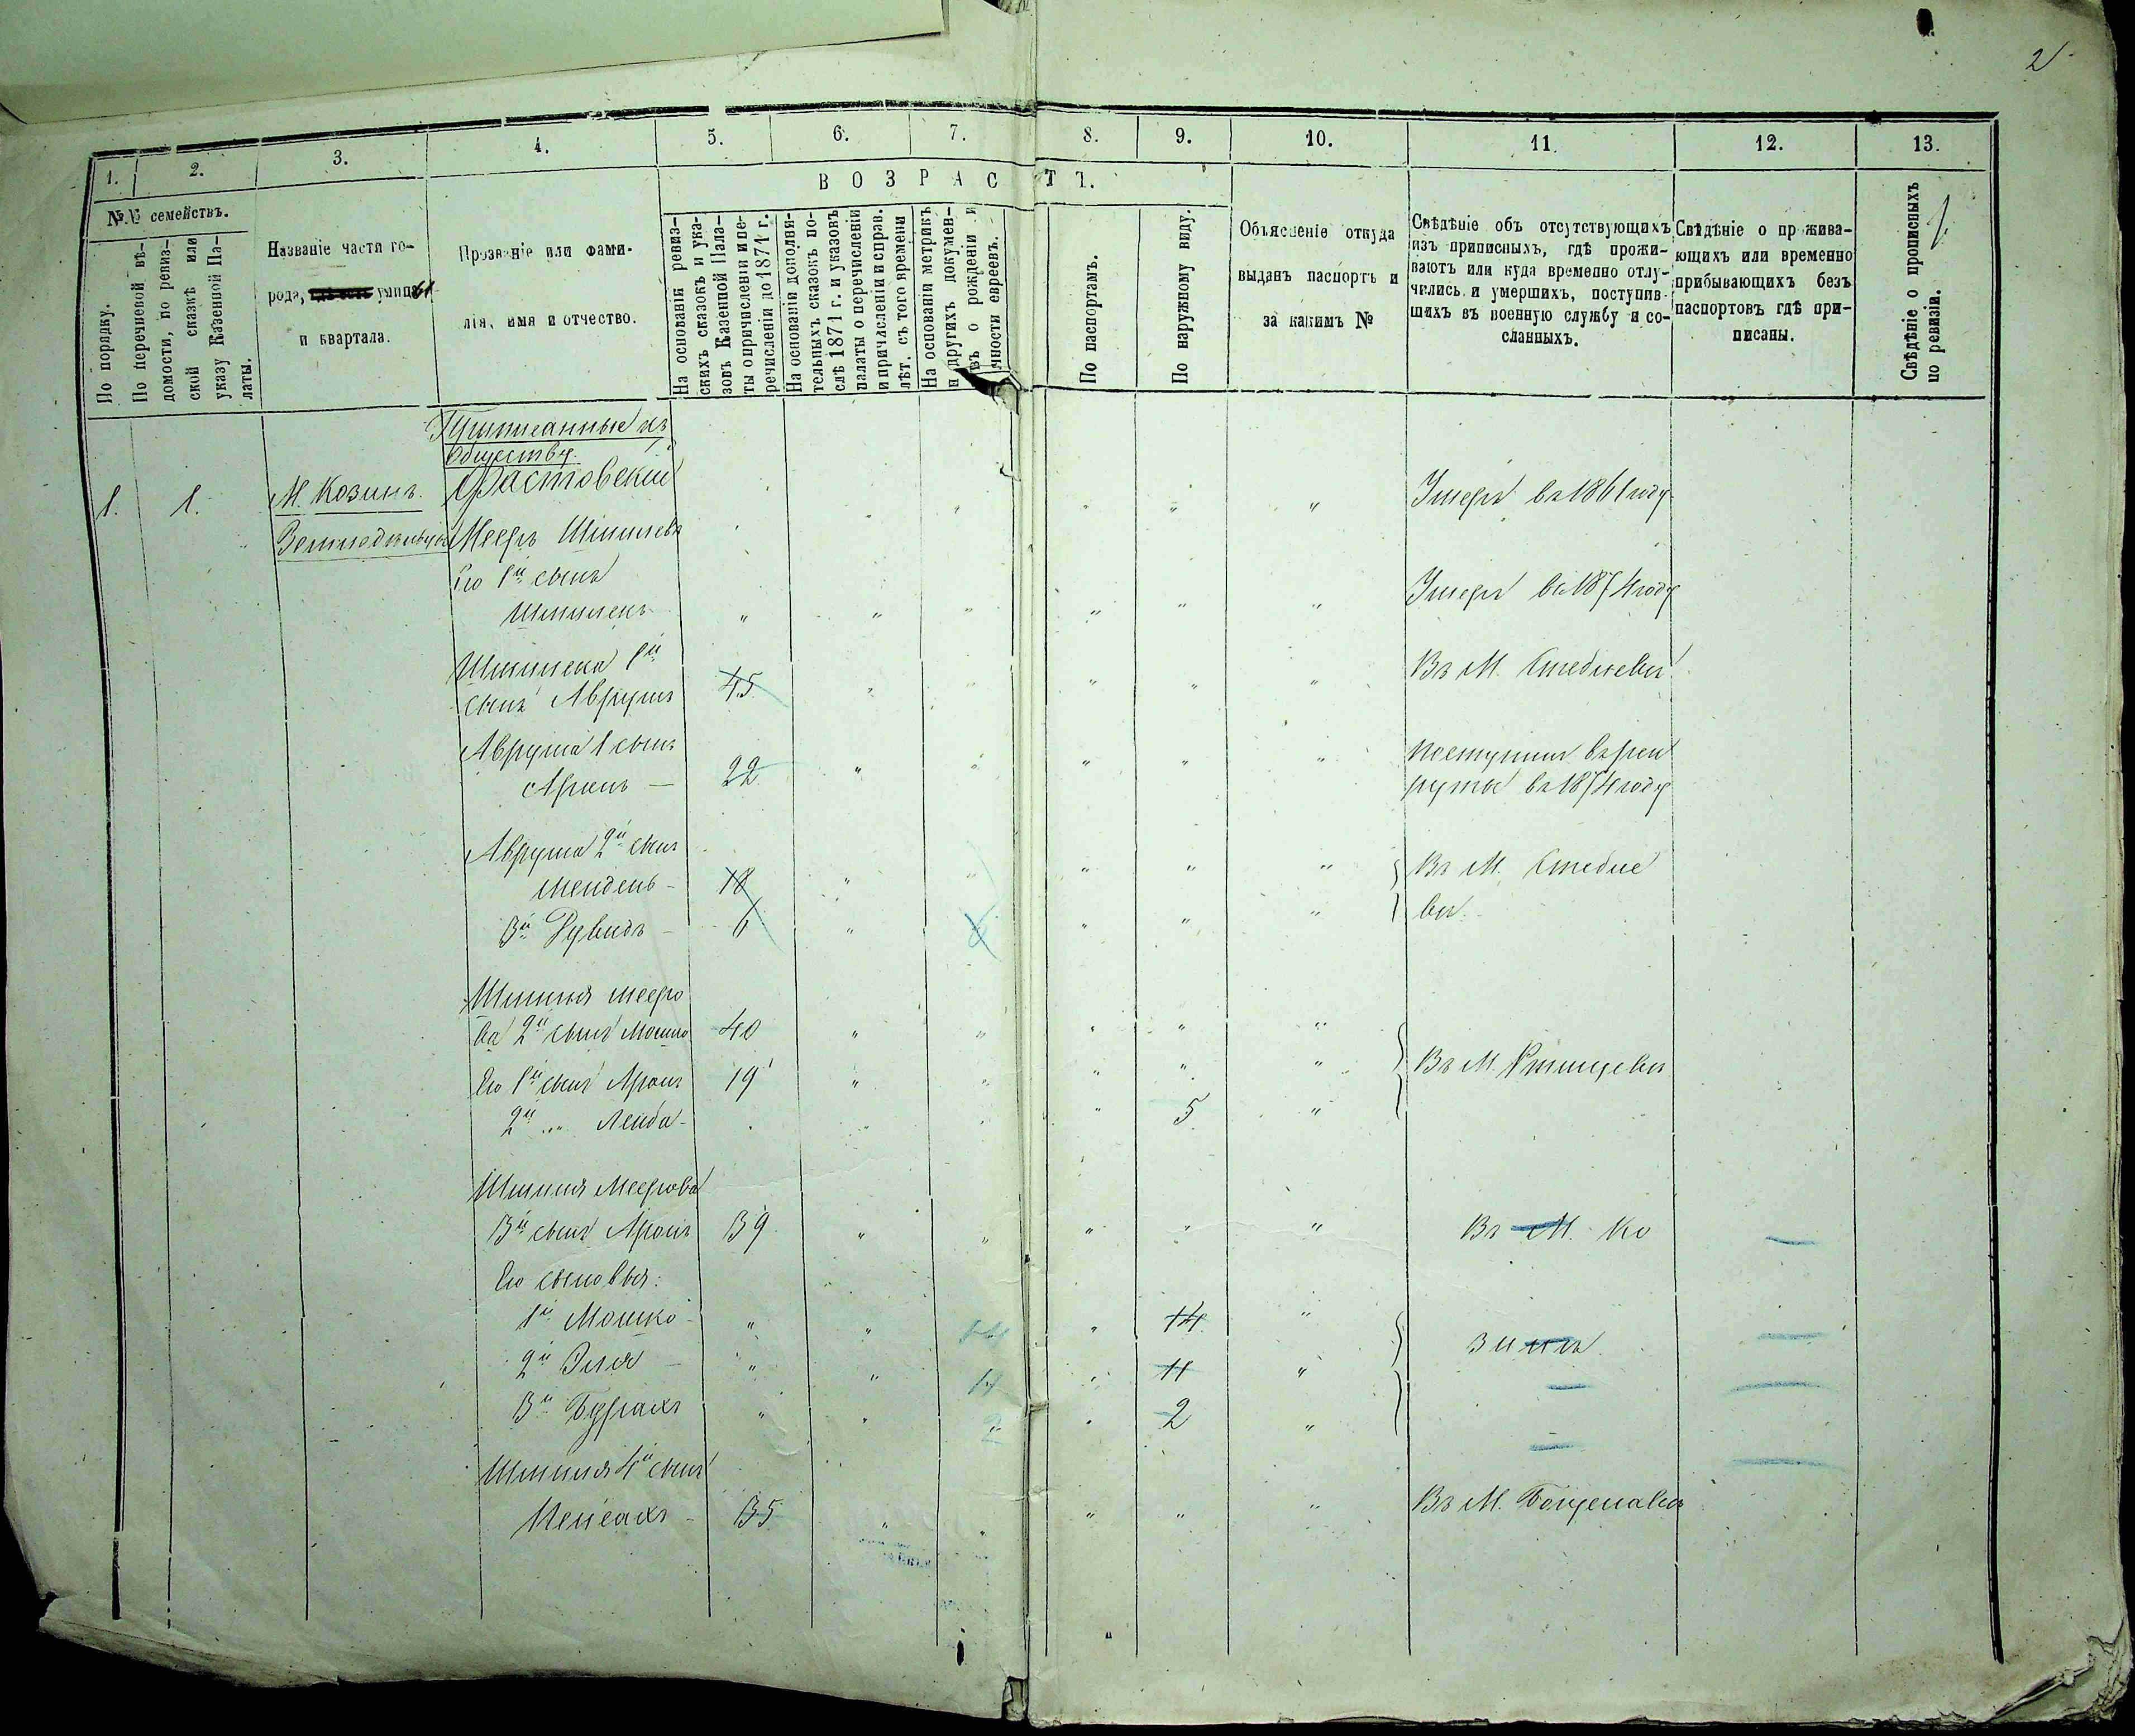 2
1. 2. 3. 4. 5. 6. 7. 8. 9. 10. 11. 12. 13.
№№ семействъ.
По порядку.
По перечневой вѣ-
домости, по ревиз-
ской сказкѣ или
указу Казенной Па-
латы.
Названіе части го-
рода, улицы
и квартала.
Прозваніе или фами-
лія, имя и отчество.
ВОЗРАСТЪ.
На основаніи ревиз-
скихъ сказокъ и ука-
зовъ Казенной Пала-
ты о причисленіи и пе-
речисленіи до 1871 г.
На основаніи дополни-
тельныхъ сказокъ по-
слѣ 1871 г. и указовъ
палаты о перечисленіи
и причисленіи и справ.
лѣт. съ того времени
На основаніи метрикъ
и другихъ докумен-
въ о рожденіи и
чности евреевъ.
По паспортамъ.
По наружному виду.
Объясненіе откуда
выданъ паспортъ и
за какимъ №
Свѣдѣніе объ отсутствующихъ
изъ приписныхъ, гдѣ прожи-
ваютъ или куда временно отлу-
чились и умершихъ, поступив-
шихъ въ военную службу и со-
сланныхъ.
Свѣдѣніе о прожива-
ющихъ или временно
прибывающихъ безъ
паспортовъ гдѣ при-
писаны.
Свѣдѣніе о прописныхъ
по ревизіи.
Приписанные къ
обществу.
1. 1. М. Козинъ. Фастовскій
Мееръ Шмилевъ
Умеръ въ 1861 году
Его 1й сынъ
Шмилекъ " " " " " " Умеръ въ 1874 году
Шмилека 1й
сынъ Аврумъ 45 " " " " " Въ М. Стеблевѣ
Аврума 1 сынъ
Аронъ — 22 " " " " " Поступилъ въ рек
руты въ 1874 году
Аврума 2й сынъ
Мендель - 18 " " " " " Въ М. Стебле
3й Рувидъ - 6 " 6 " " " вѣ.
Шмиля Мееро
ва 2й сынъ Мошко 40 " " " " "
Его 1й сынъ Аронъ 19 " " " " " Въ М. Ртищевѣ
2й " Лейба - " " " 5 "
Шмиля Меерова
3й сынъ Аронъ 39 " " " " " Въ М. Ко
Его сыновья:
1й Мошко - " " 14 " 14 "
зинѣ.
2й Эля — " " 11 " 11 "
3й Бурахъ " " 2 " 2 "
Шмиля 4й сынъ
35 " " " " " Въ М.